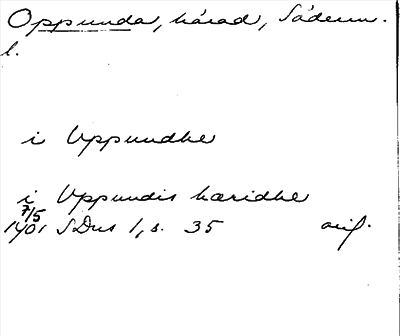 Oppunda, härad, Söderm.
l.
i Uppundhe
i Uppundis hæridhe
7/5
1401 SDns 1, s. 35 orig.